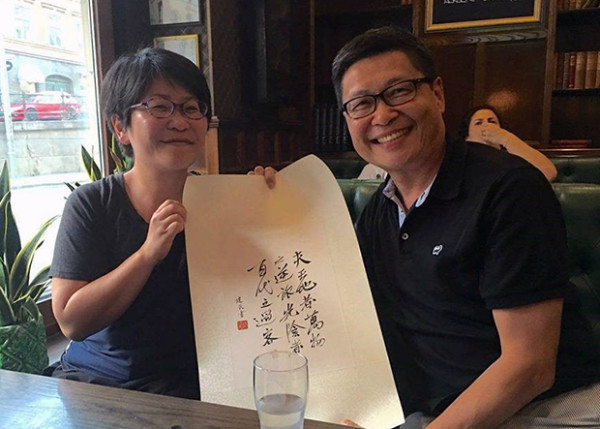 夫天地者萬物
之逆旅光陰者
百代之過客